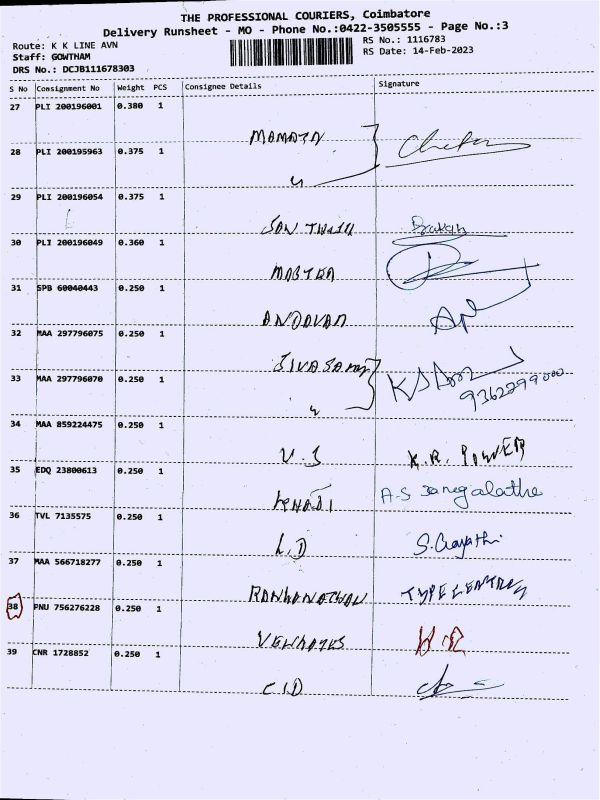 THE PROFESSIONAL COURIERS, Coimbatore
Delivery Runsheet - MO - Phone No.:0422-3505555 - Page No.:3
Route: K K LINE AVN
RS No.: 1116783
Staff: GOWTHAM
RS Date: 14-Feb-2023
DRS No.: DCJB111678303
S No Consignment No Weight PCS Consignee Details Signature
27 PLI 200196001 0.380 1
28 PLI 200195963 0.375 1
29 PLI 200196054 0.375 1
30 PLI 200196049 0.360 1
31 SPB 60040443 0.250 1
ANDAVAN
32 MAA 297796075 0.250 1
SIVASAMY
33 MAA 297796070 0.250 1
9362299000
34 MAA 859224475 0.250 1
V.J K.R. POWER
35 EDQ 23800613 0.250 1
KHADI
36 TVL 7135575 0.250 1
L.D S.Gayathri
37 MAA 566718277 0.250 1
38 PNU 756276228 0.250 1
39 CNR 1728852 0.250 1
CID